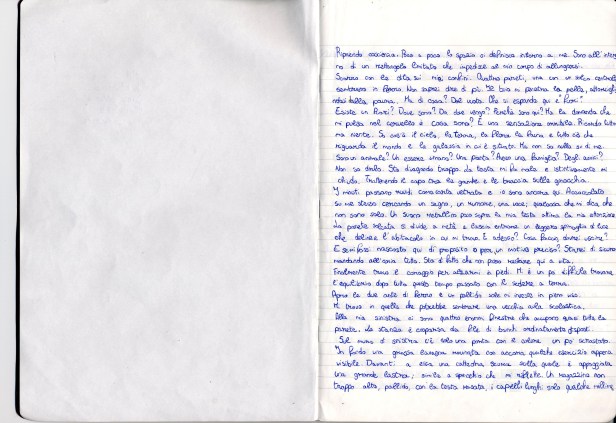 Riprendo coscienza. Poco a poco lo spazio si definisce intorno a me. Sono all'inter
no di un rettangolo limitato che impedisce al mio corpo di allungarsi.
con le dita i miei confini. Quattro pareti, una con un solco centrale
sembrano in ferro. Non saprei dire di più. il buio mi penetra la pelle,
della paura. Ma di cosa? Del vuoto che si espande qui e "fuori"
Esiste un fuori? Dove sono? Da dove vengo? Perché sono qui? Ma la domanda che
mi pulsa nel cervello è cosa sono? È una sensazione orribile. Ricordo tutto
ma niente. So cos'è il cielo, la terra, la flora la fauna e tutto ciò che
riguarda il mondo e la galassia in cui è situato. Ma non so nulla su di me.
Sono un animale? Un essere umano? Una pianta? Avevo una famiglia? Degli amici?
Non so dirlo. Sto divagando troppo. La testa mi fa male e istintivamente mi
chiudo. il capo tra le gambe e le braccia sulle ginocchia.
I minuti passano muti come e io sono ancora qui. Accovacciato
su me stesso cercando un segno, un rumore, una voce; qualcosa che mi dica che
non sono solo. Un suono metallico poco sopra la mia testa attira la mia attenzione
La parete solcata si divide a metà e lascia entrare un leggero spiraglio di luce
che delinea l'abitacolo in cui mi trovo. E adesso? Cosa faccio, dovrei uscire?
E se mi fossi nascosto qui di proposito o per un motivo preciso? Starei di sicuro
mandando all'aria tutto. Sta di fatto che non posso restare qui a vita.
Finalmente trovo il coraggio per alzarmi in piedi. Mi è un po' difficile trovare
l'equilibrio dopo tutto questo tempo passato con il sedere a terra.
Apro le due ante di ferro e un pallido sole mi investe in pieno viso.
Mi trovo in quella che potrebbe sembrare una vecchia aula scolastica.
Alla mia sinistra ci sono quattro enormi finestre che occupano quasi tutta la
parete. La stanza è cosparsa da file di banchi ordinatamente disposti.
Sul muro di sinistra c'è solo una porta con il colore un po' scrostato.
In fondo una grossa lavagna con ancora qualche esercizio appena
visibile. Davanti a essa una cattedra scura sulla quale è appoggiata
una grande lastra; simile a specchio che mi riflette. Un ragazzino non
troppo alto, pallido, con la testa rasata, i capelli lunghi solo qualche millime